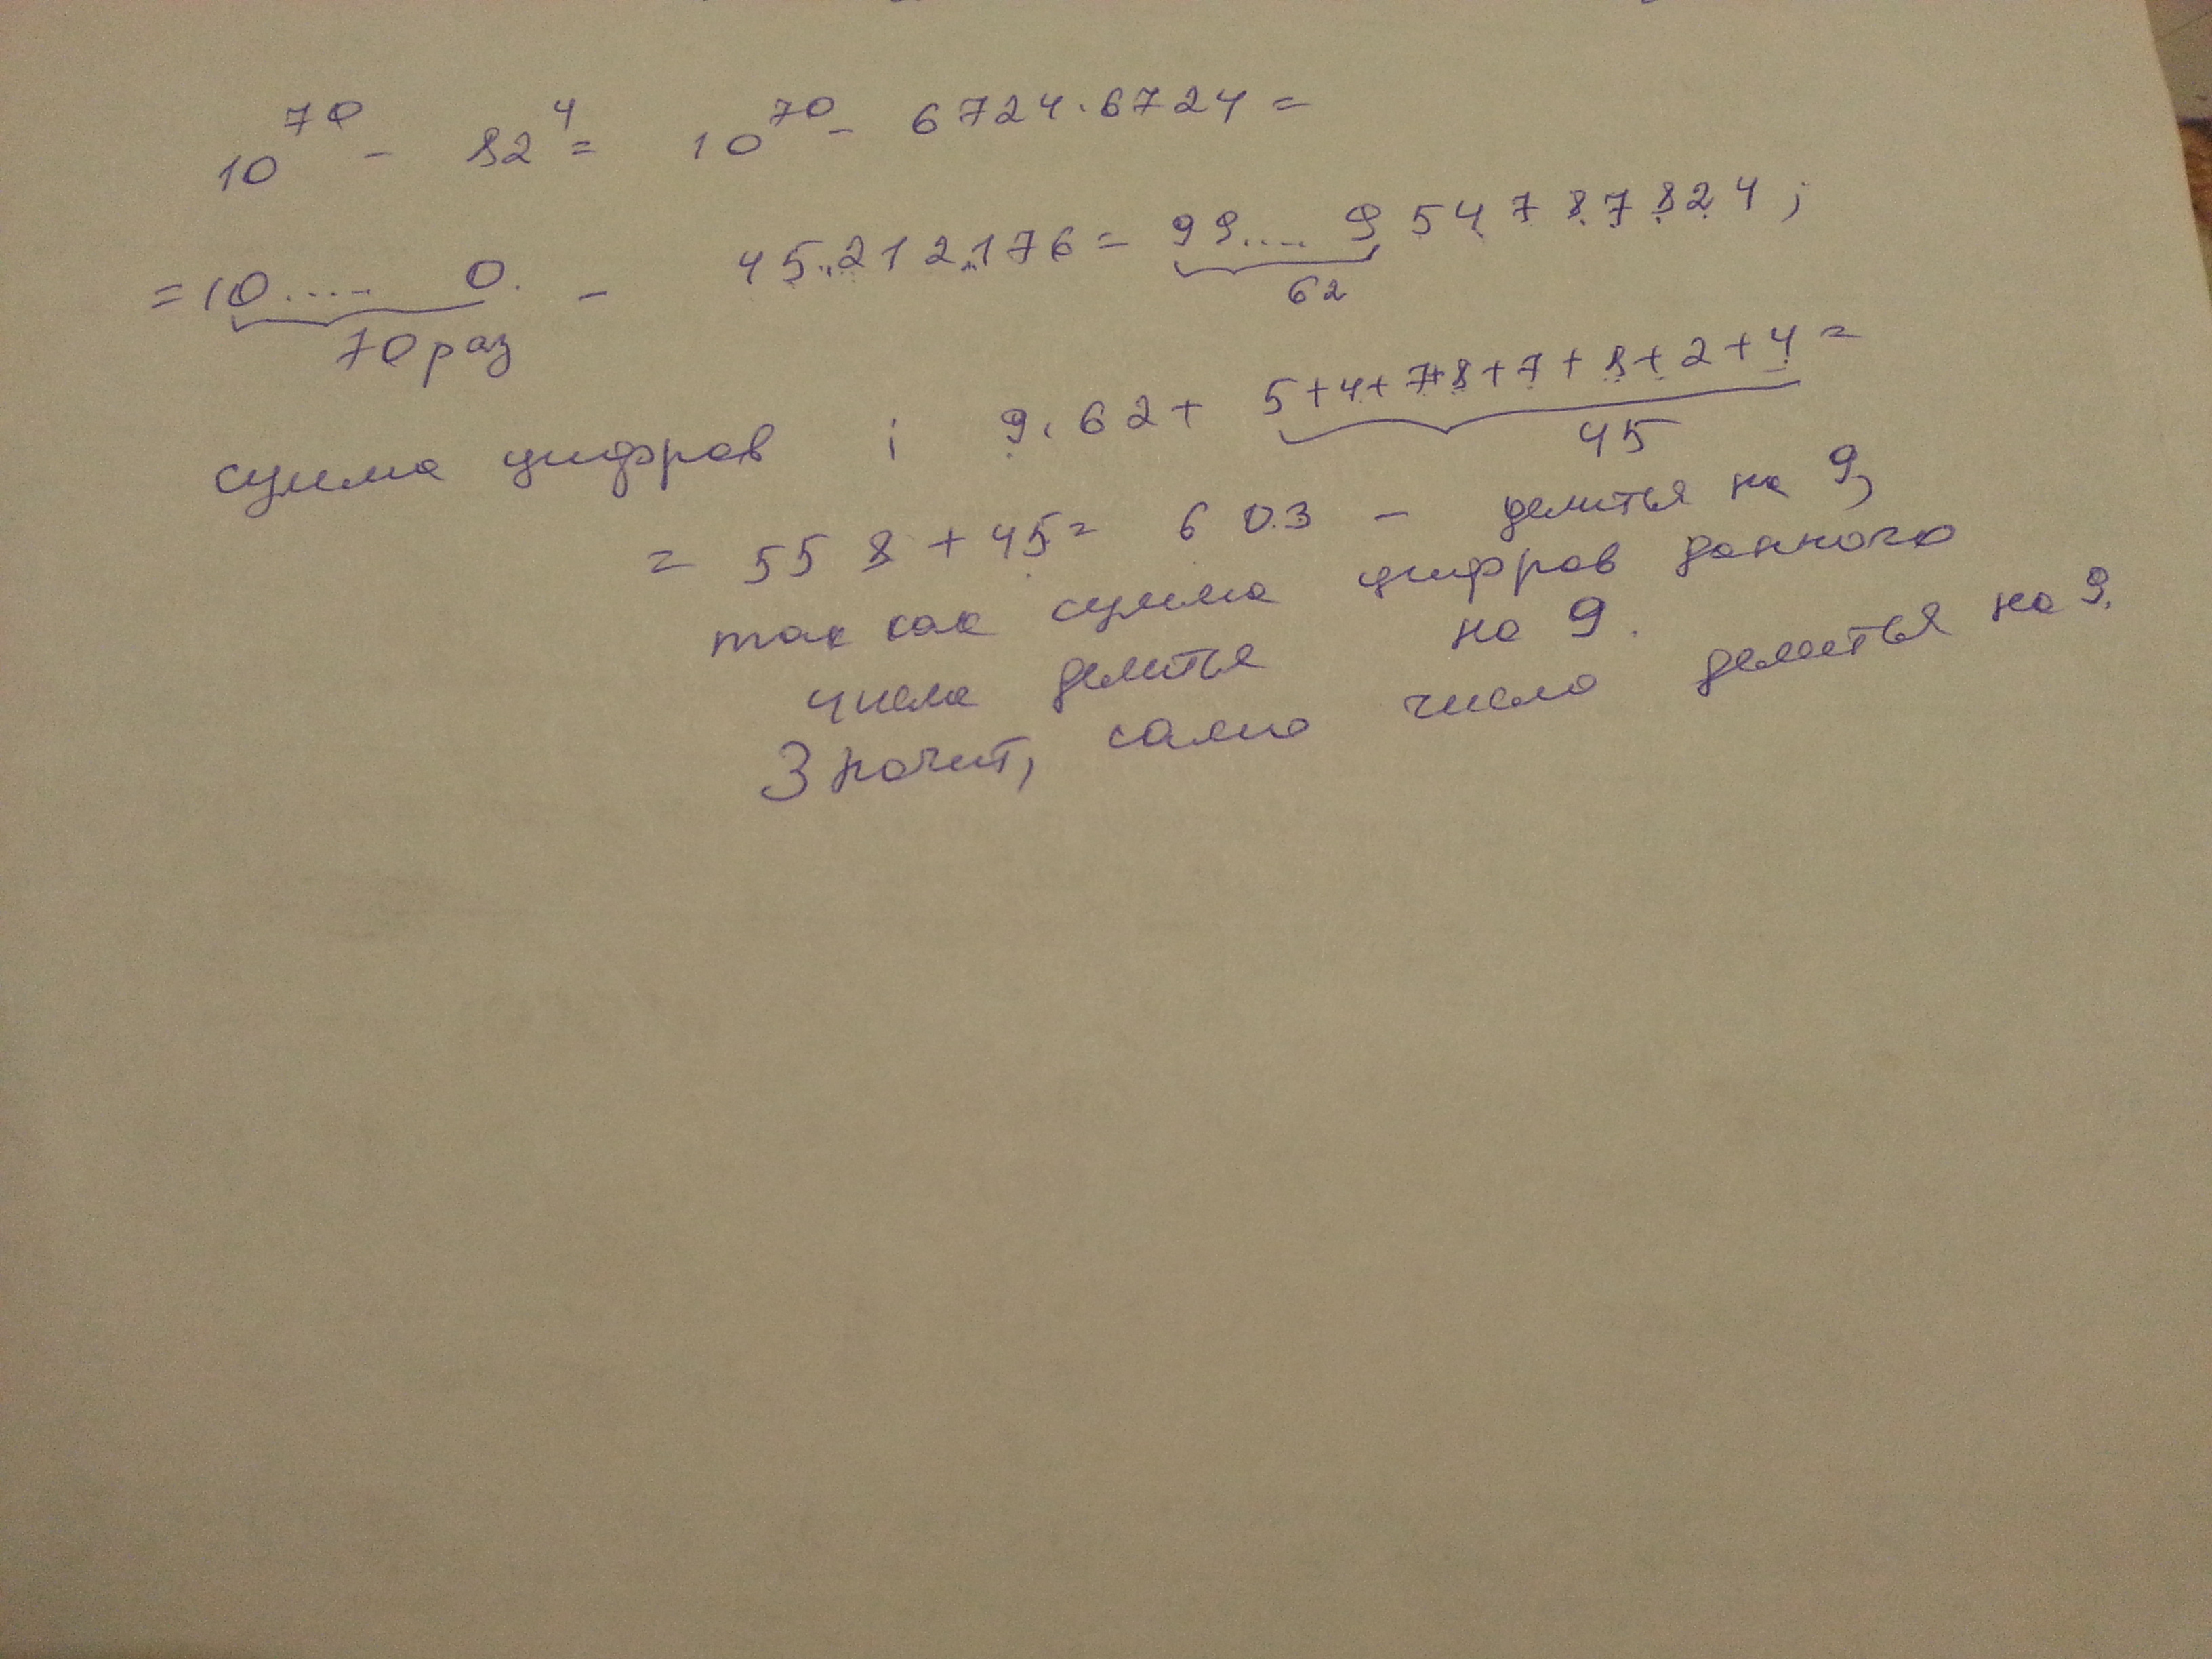 10⁷⁰ - 82⁴ = 10⁷⁰ - 6724.6724 =
= 10..... 0. - 45.212.176 = 99.... 9 54787824;
70 раз 62
сумма цифров ; 9.62 + 5+4+7+8+7+8+2+4 =
45
= 558 + 45 = 603 - делитья на 9,
так как сумма цифров данного
числа делитья на 9.
Значит, само число делитья на 9.